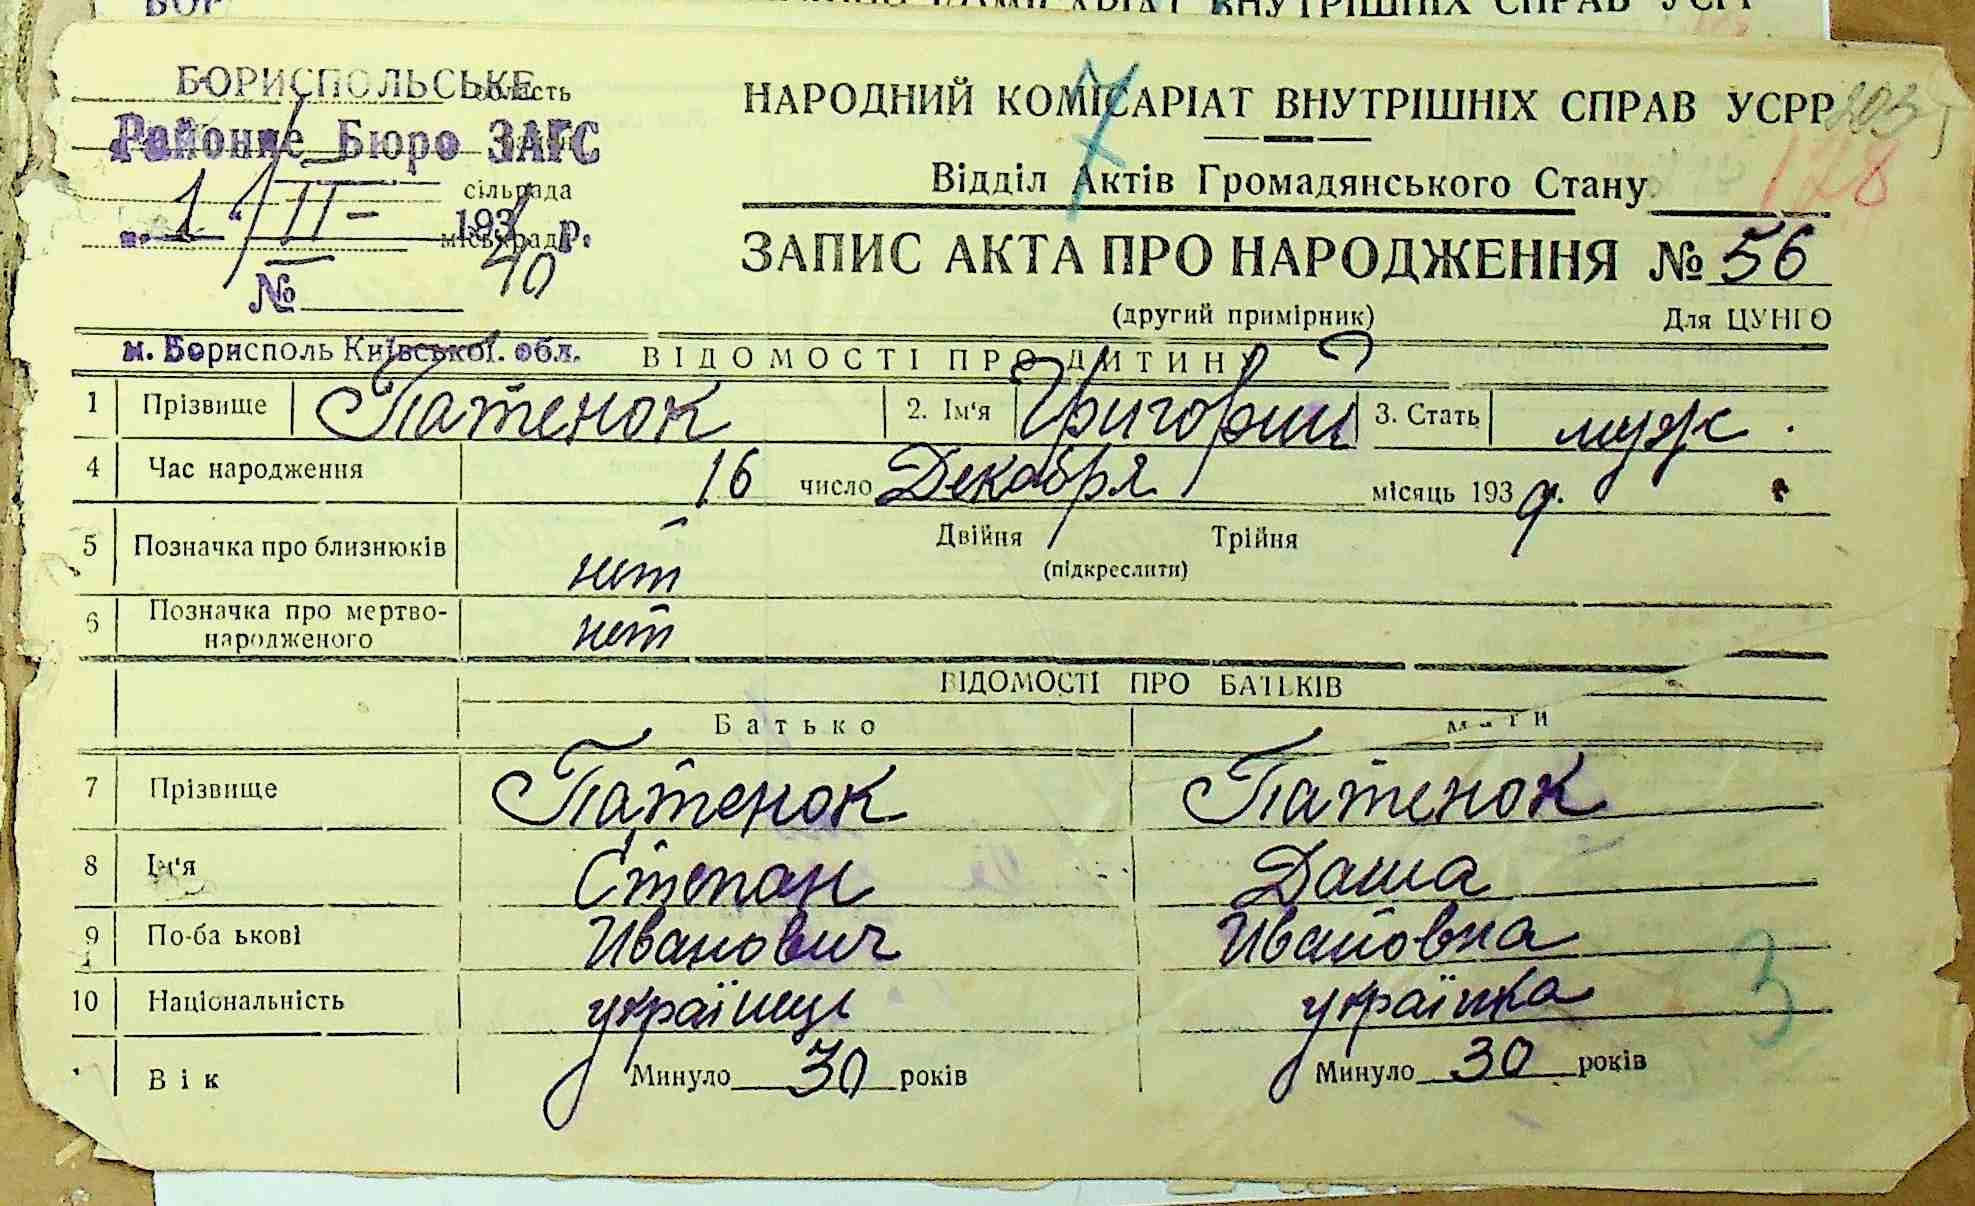 БОРИСПОЛЬСЬКЕ
область
Районне Бюро ЗАГС
сільрада
1/II- 193 р.
міськрада
40
№
м. Борисполь Київської обл.
НАРОДНИЙ КОМІСАРІАТ ВНУТРІШНІХ СПРАВ УСРР
203
7
178
Відділ Актів Громадянського Стану
ЗАПИС АКТА ПРО НАРОДЖЕННЯ № 56
(другий примірник) Для ЦУНГО
ВІДОМОСТІ ПРО ДИТИНУ
1 Прізвище Патенок 2. Ім'я Григорий 3. Стать муж.
4 Час народження 16 число Декабря місяць 1939.
5 Позначка про близнюків нет Двійня Трійня
(підкреслити)
6 Позначка про мертво-
народженого нет
ВІДОМОСТІ ПРО БАТЬКІВ
Батько Мати
7 Прізвище Патенок Патенок
8 Ім'я Степан Даша
9 По-ба ькові Иванович Ивановна
10 Національність українець українка
3
Вік Минуло 30 років Минуло 30 років